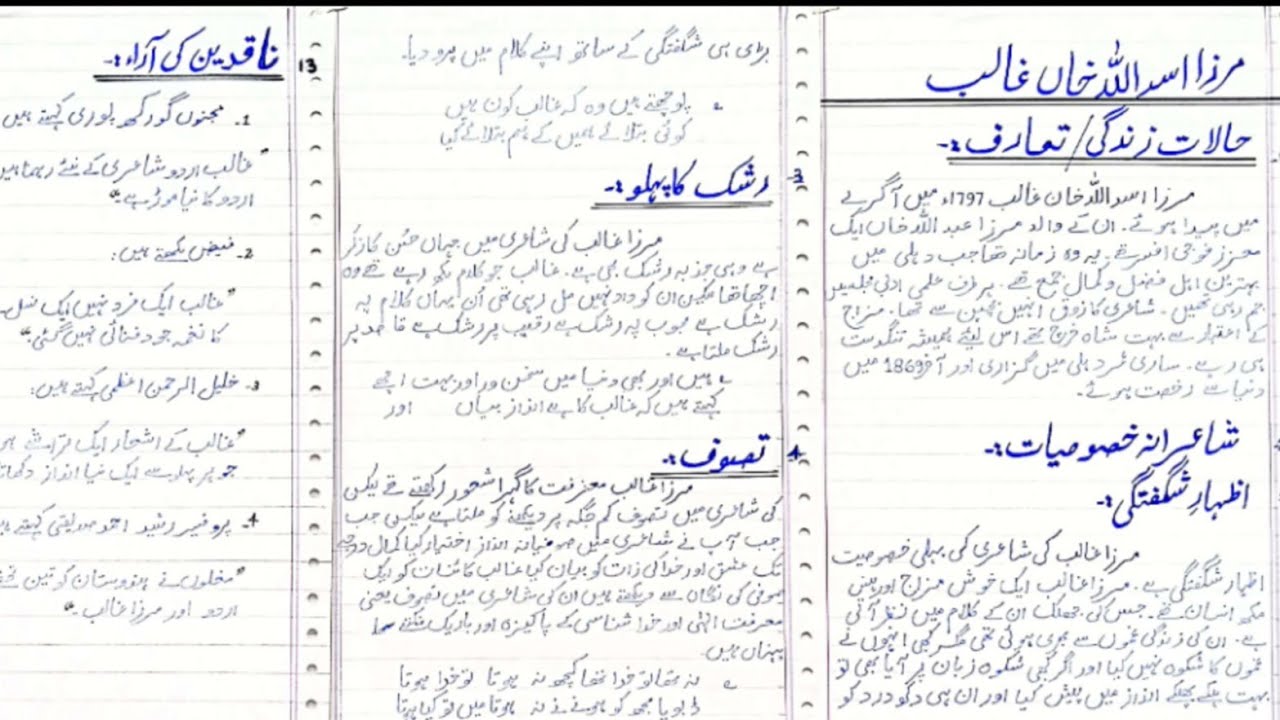 مرزا اسد اللہ خاں غالب
حالات زندگی/ تعارف:-
مرزا اسد اللہ خان غالب 1797ء میں آگرے
میں پیدا ہوئے۔ ان کے والد مرزا عبد اللہ خاں ایک
معزز فوجی افسر تھے۔ یہ وہ زمانہ تھا جب دہلی میں
بہترین اہل فضل و کمال جمع تھے۔ ہر طرف علمی ادبی مجلسیں
جم رہی تھیں۔ شاعری کا ذوق انہیں بچپن سے تھا۔ مزاج
کے اعتبار سے بہت شاہ خرچ تھے اس لیئے ہمیشہ تنگدست
ہی رہے۔ ساری عمر دہلی میں گزاری اور آخر 1869 میں
دنیا سے رخصت ہوئے۔
شاعرانہ خصوصیات:-
اظہارِ شگفتگی:-
مرزا غالب کی شاعری کی پہلی خصوصیت
اظہار شگفتگی ہے۔ مرزا غالب ایک خوش مزاج اور
انسان تھے۔ جس کی جھلک ان کے کلام میں نظر آتی
ہے۔ ان کی زندگی غموں سے بھری ہوئی تھی مگر کبھی انہوں نے
غموں کا شکوہ نہیں کیا اور اگر کبھی شکوہ زبان پر آیا بھی تو
بہت ہلکے پھلکے انداز میں پیش کیا اور ان ہی دکھ درد کو
بڑی ہی شگفتگی کے ساتھ اپنے کلام میں پرو دیا۔
پوچھتے ہیں وہ کہ غالب کون ہیں
کوئی بتلائے ہمیں کے ہم بتلائے کیا
3- رشک کا پہلو:-
مرزا غالب کی شاعری میں جہاں حُسن کا ذکر
ہے وہی جذبہ رشک بھی ہے۔ غالب جو کلام لکھ رہے تھے وہ
اچھا تھا لیکن ان کو داد نہیں مل رہی تھی اُن یہاں کلام پہ
رشک ہے محبوب پہ رشک ہے رقیب پر رشک ہے قاصد پر
رشک ملتا ہے۔
ہیں اور بھی دنیا میں سخن ور اور بہت اچھے
کہتے ہیں کہ غالب کا ہے انداز بیاں اور
4- تصوف:-
مرزا غالب معرفت کا گہرا شعور رکھتے تھے لیکن
کی شاعری میں تصوف کم جگہ پر دیکھنے کو ملتا ہے لیکن جب
جب آپ نے شاعری میں صوفیانہ انداز اختیار کیا کمال درجے
تک عشق اور خدا کی ذات کو بیان کیا غالب کائنات کو ایک
صوفی کی نگاہ سے دیکھتے ہیں ان کی شاعری میں تصوف یعنی
معرفت الہٰی اور خدا شناسی کے پاکیزہ اور باریک نکتے
پنہاں ہیں۔
نہ تھا تو خدا تھا کچھ نہ ہوتا تو خدا ہوتا
ڈبویا مجھ کو ہونے نے نہ ہوتا میں تو کیا ہوتا
13 ناقدین کی آراء:-
1. مجنوں گورکھپوری کہتے ہیں
"غالب اردو شاعری کے نئے رہنما ہیں
اردو کا نیا موڑ ہے"
2. فیض لکھتے ہیں:
"غالب ایک فرد نہیں ایک نسل
کا نغمہ جو دفنائی نہیں گئی"
3. خلیل الرحمن اعظمی کہتے ہیں:
"غالب کے اشعار ایک
جو ہر پہلو سے ایک نیا انداز
4. پروفیسر رشید احمد صدیقی کہتے
"مغلوں نے ہندوستان کو تین
اردو اور مرزا غالب۔"